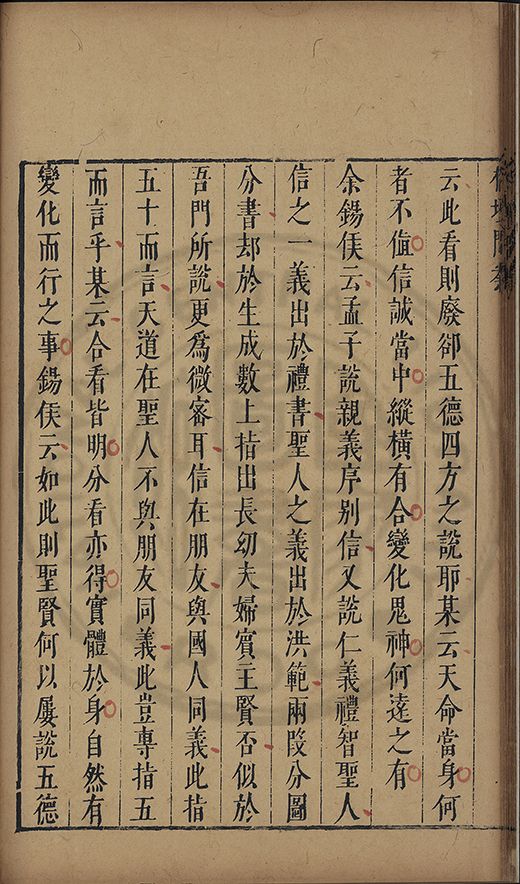 云此看則廢卻五德四方之說耶某云天命當身何
者不值信誠當中縱橫有合變化鬼神何遠之有
余鍚侯云孟子說親義序别信又說仁義禮智聖人
信之一義出於禮書聖人之義出於洪範兩段分圖
分書却於生成數上指出長幼夫婦賓主賢否似於
吾門所說更為微密耳信在朋友與國人同義此指
五十而言天道在聖人不與朋友同義此豈專指五
而言乎某云合看皆明分看亦得實體於身自然有
變化而行之事鍚侯云如此則聖賢何以屢說五德